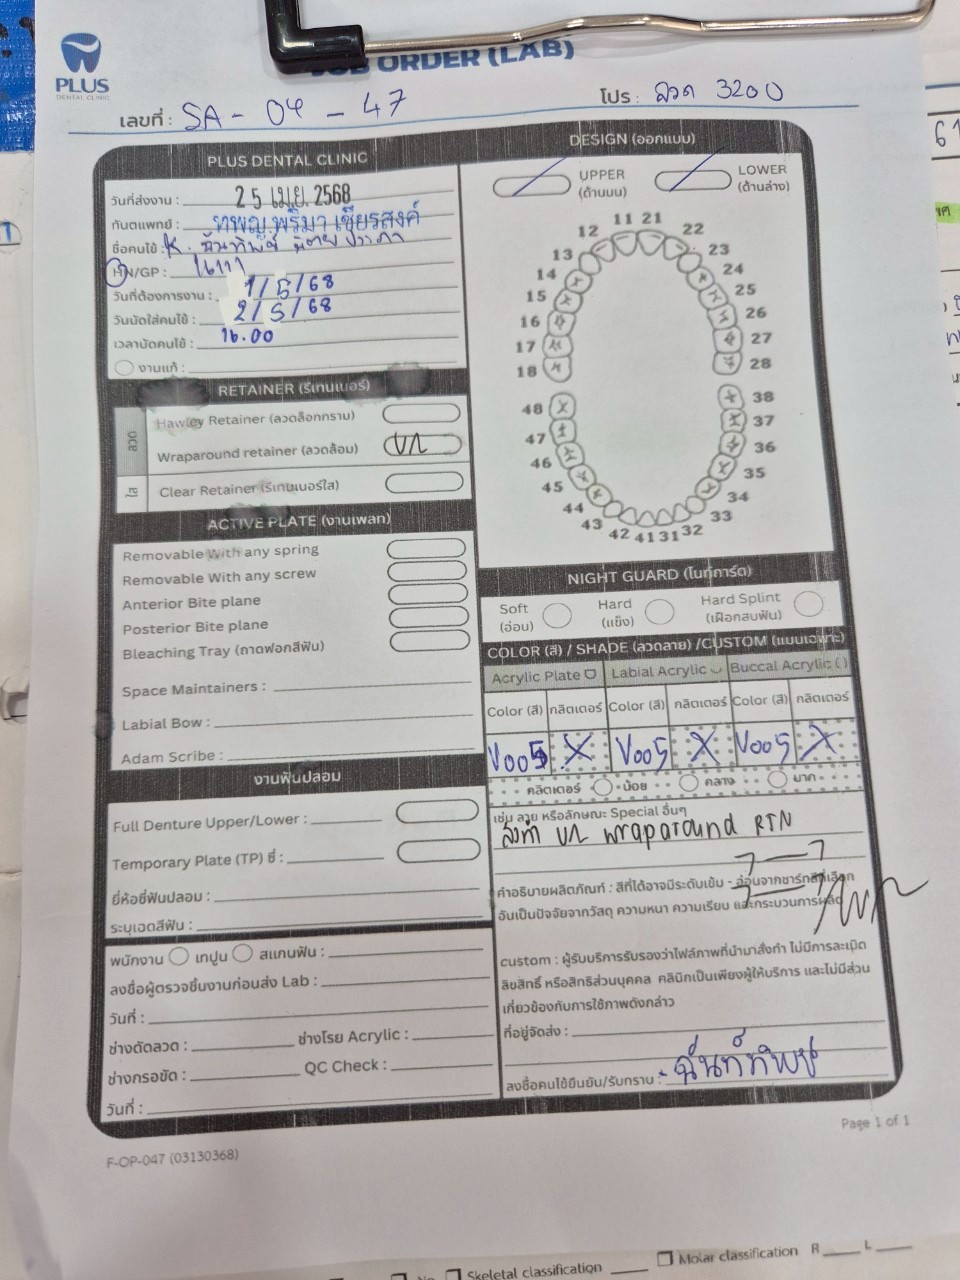 PLUS
DENTAL CLINIC
JOB ORDER (LAB)
เลขที่ : SA - 04 - 47
โปร : ลวด 3200
PLUS DENTAL CLINIC
วันที่ส่งงาน : 25 เม.ย. 2568
ทันตแพทย์ : ทพญ.พริมา เชียรสงค์
ชื่อคนไข้ : K. ฉันท์ทิพย์
HN/GP : 16111
วันที่ต้องการงาน : 1/5/68
วันนัดใส่คนไข้ : 2/5/68
เวลานัดคนไข้ : 16.00
งานแก้ :
RETAINER (รีเทนเนอร์)
ลวด
Hawley Retainer (ลวดล็อกกราม)
Wraparound retainer (ลวดล้อม) U/L
ใส
Clear Retainer (รีเทนเนอร์ใส)
ACTIVE PLATE (งานเพลท)
Removable With any spring
Removable With any screw
Anterior Bite plane
Posterior Bite plane
Bleaching Tray (ถาดฟอกสีฟัน)
Space Maintainers :
Labial Bow :
Adam Scribe :
งานฟันปลอม
Full Denture Upper/Lower :
Temporary Plate (TP) ซี่ :
ยี่ห้อซี่ฟันปลอม :
ระบุเฉดสีฟัน :
พนักงาน เทปูน สแกนฟัน :
ลงชื่อผู้ตรวจชิ้นงานก่อนส่ง Lab :
วันที่ :
ช่างดัดลวด : ช่างโรย Acrylic :
ช่างกรอขัด : QC Check :
วันที่ :
DESIGN (ออกแบบ)
UPPER
(ด้านบน)
LOWER
(ด้านล่าง)
11 21
12 22
13 23
14 24
15 25
16 26
17 27
18 28
48 38
47 37
46 36
45 35
44 34
43 33
42 41 31 32
NIGHT GUARD (ไนท์การ์ด)
Soft
(อ่อน)
Hard
(แข็ง)
Hard Splint
(เฝือกสบฟัน)
COLOR (สี) / SHADE (ลวดลาย) /CUSTOM (แบบเฉพาะ)
Acrylic Plate Labial Acrylic Buccal Acrylic ( )
Color (สี) กลิตเตอร์ Color (สี) กลิตเตอร์ Color (สี) กลิตเตอร์
V005 X V005 X V005 X
กลิตเตอร์ น้อย กลาง มาก
เช่น ลาย หรือลักษณะ Special อื่นๆ
สั่งทำ U/L wraparound RTN
7—7
7—7
คำอธิบายผลิตภัณฑ์ : สีที่ได้อาจมีระดับเข้ม - อ่อนจากชาร์ทสีที่เลือก
อันเป็นปัจจัยจากวัสดุ ความหนา ความเรียบ และกระบวนการผลิต
custom : ผู้รับบริการรับรองว่าไฟล์ภาพที่นำมาสั่งทำ ไม่มีการละเมิด
ลิขสิทธิ์ หรือสิทธิส่วนบุคคล คลินิกเป็นเพียงผู้ให้บริการ และไม่มีส่วน
เกี่ยวข้องกับการใช้ภาพดังกล่าว
ที่อยู่จัดส่ง :
ลงชื่อคนไข้ยืนยัน/รับทราบ : ฉันท์ทิพย์
Page 1 of 1
F-OP-047 (03130368)
Skeletal classification
Molar classification R L